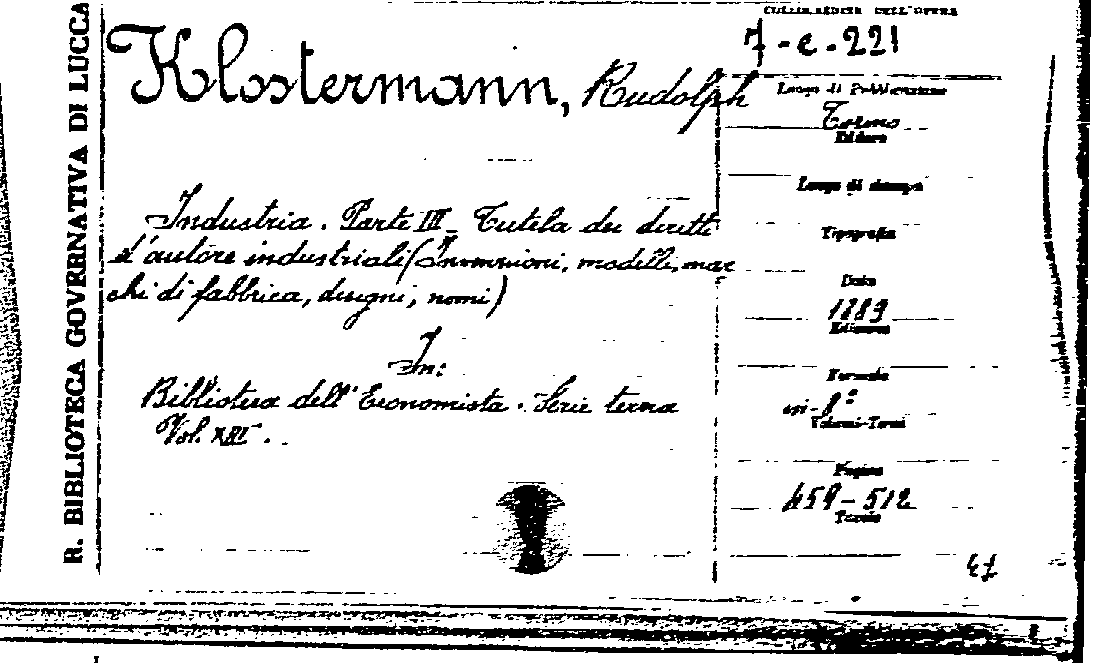 R. BIBLIOTECA GOVERNATIVA DI LUCCA
COLLOCAZIONE DELL'OPERA
7-c-221
Klostermann, Rudolph
Industria. Parte III_ Tutela dei diritti
d'autore industriali (Invenzioni, modelli, mar
chi di fabbrica, disegni, nomi)
In:
Biblioteca dell'Economista. Serie terza
Vol. XIII.
Luogo di Pubblicazione
Torino
Editore
Luogo di stampa
Tipografia
Data
1889
Edizione
Formato
in-8º
Volumi-Tomi
Pagine
459-512
Tavole